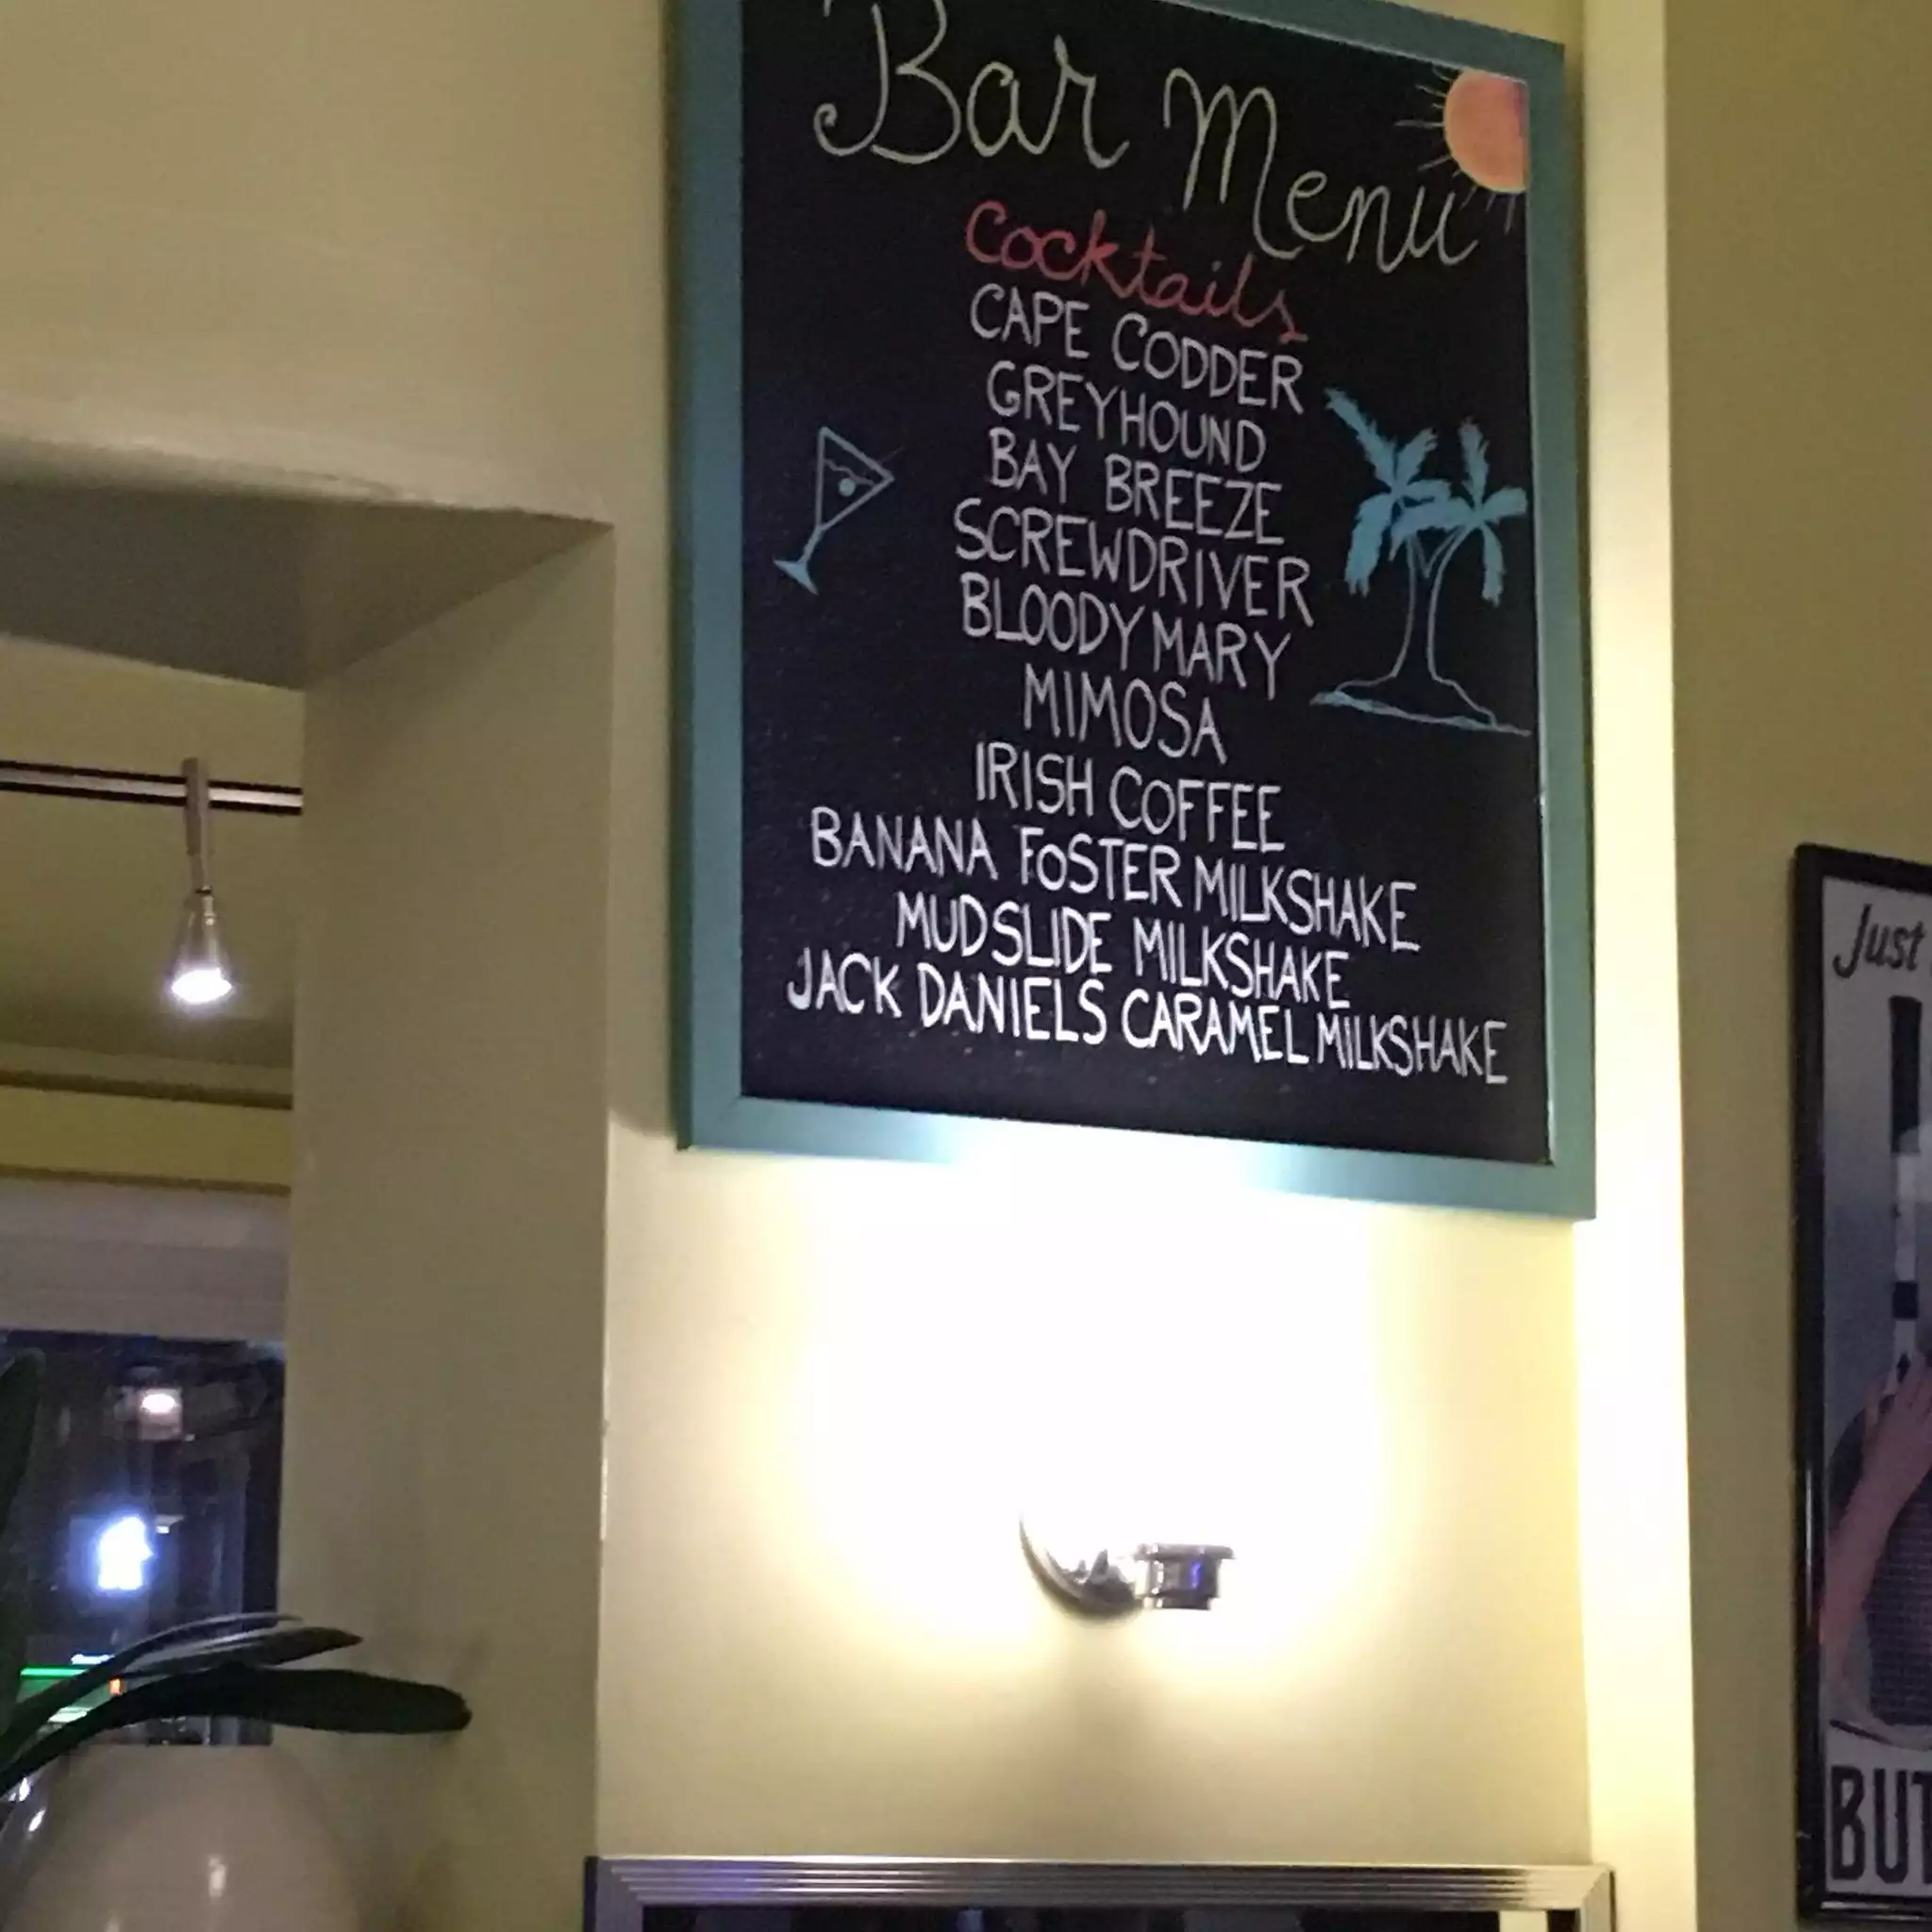 Bar Menu
Cocktails
CAPE CODDER
GREYHOUND
BAY BREEZE
SCREWDRIVER
BLOODY MARY
MIMOSA
IRISH COFFEE
BANANA FOSTER MILKSHAKE
MUDSLIDE MILKSHAKE
JACK DANIELS CARAMEL MILKSHAKE
Just
BUT